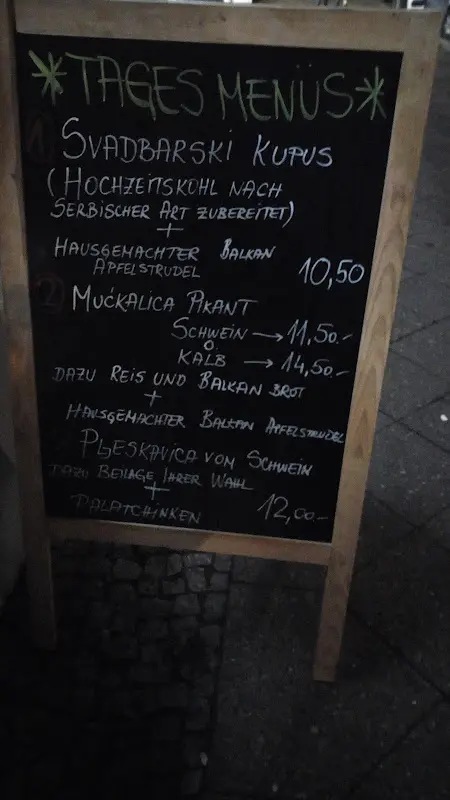 *TAGES MENÜS*
1) SVADBARSKI KUPUS
(HOCHZEITSKOHL NACH
SERBISCHER ART ZUBEREITET)
+
HAUSGEMACHTER BALKAN
APFELSTRUDEL 10,50
2) MUĆKALICA PIKANT
SCHWEIN → 11,50.-
O.
KALB → 14,50.-
DAZU REIS UND BALKAN BROT
+
HAUSGEMACHTER BALKAN APFELSTRUDEL
PLESKAVICA VOM SCHWEIN
DAZU BEILAGE IHRER WAHL
+
PALATCHINKEN 12,00.-